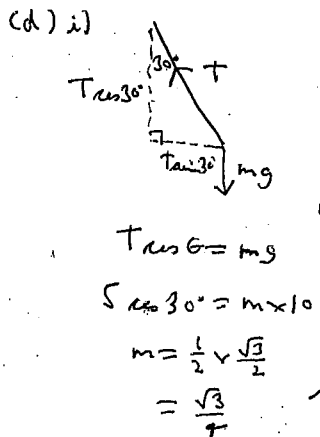 (d) i)
30°
T
T cos 30°
T sin 30°
mg
T cos θ = mg
5 cos 30° = m × 10
m = 1/2 × √3/2
= √3/4